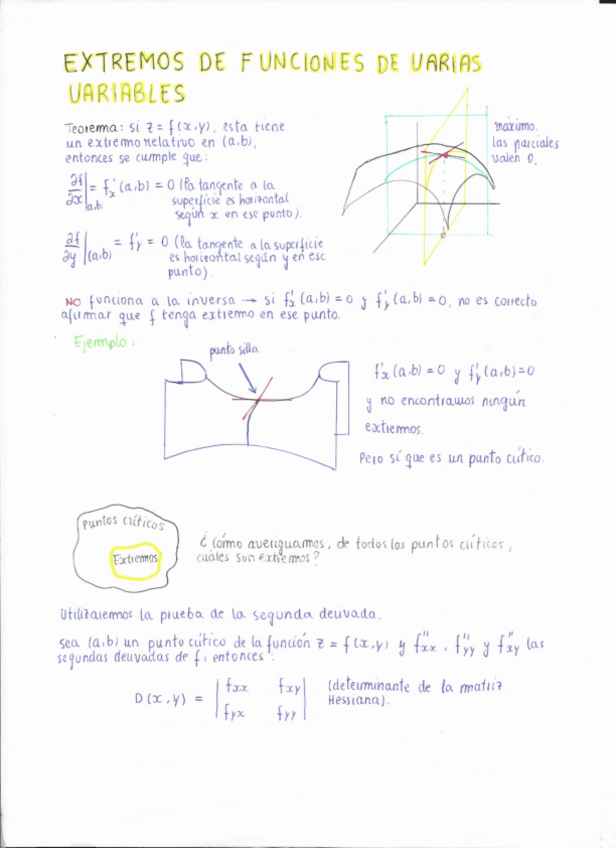 EXTREMOS DE FUNCIONES DE VARIAS
VARIABLES
Teorema: si z = f(x,y), esta tiene
un extremo relativo en (a,b),
entonces se cumple que:
∂f/∂x|a,b = f'x (a,b) = 0 (la tangente a la
superficie es horizontal
según x en ese punto).
∂f/∂y|(a,b) = f'y = 0 (la tangente a la superficie
es horizontal según y en ese
punto).
máximo.
las parciales
valen 0.
NO funciona a la inversa → si f'x (a,b) = 0 y f'y (a,b) = 0, no es correcto
afirmar que f tenga extremo en ese punto.
Ejemplo:
punto silla
f'x (a,b) = 0 y f'y (a,b) = 0
y no encontramos ningún
extremos.
Pero sí que es un punto crítico.
Puntos críticos
Extremos
¿Cómo averiguamos, de todos los puntos críticos,
cuáles son extremos?
Utilizaremos la prueba de la segunda derivada.
Sea (a,b) un punto crítico de la función z = f(x,y) y f''xx, f''yy y f''xy las
segundas derivadas de f, entonces:
D(x,y) = | fxx fxy | (determinante de la matriz
| fyx fyy | Hessiana).